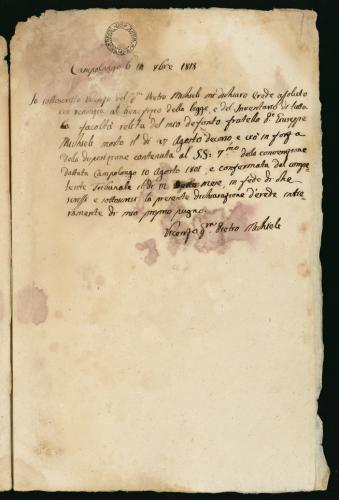 Campolongo 6 in 9bre 1818
Io sottoscritto Vicenzo del qm Pietro Michieli mi dichiaro Erede assoluto
con rinonzia al beneficio della legge, e del Inventario di tutta
la facoltà relita dal mio defonto fratello Dn Giuseppe
Michieli morto il dì 27 Agosto decorso e ciò in forza
dela disposizione contenuta al §§: 7mo dela convenzione
dattata Campolongo 10 Agosto 1801 e confermata dal compe
tente Tribunale il dì 12 mese, in fede di che
scrissi e sottoscrissi la presente dichiarazione d'erede intie
ramente di mio proprio pugno
Vicenzo qm Pietro Michieli